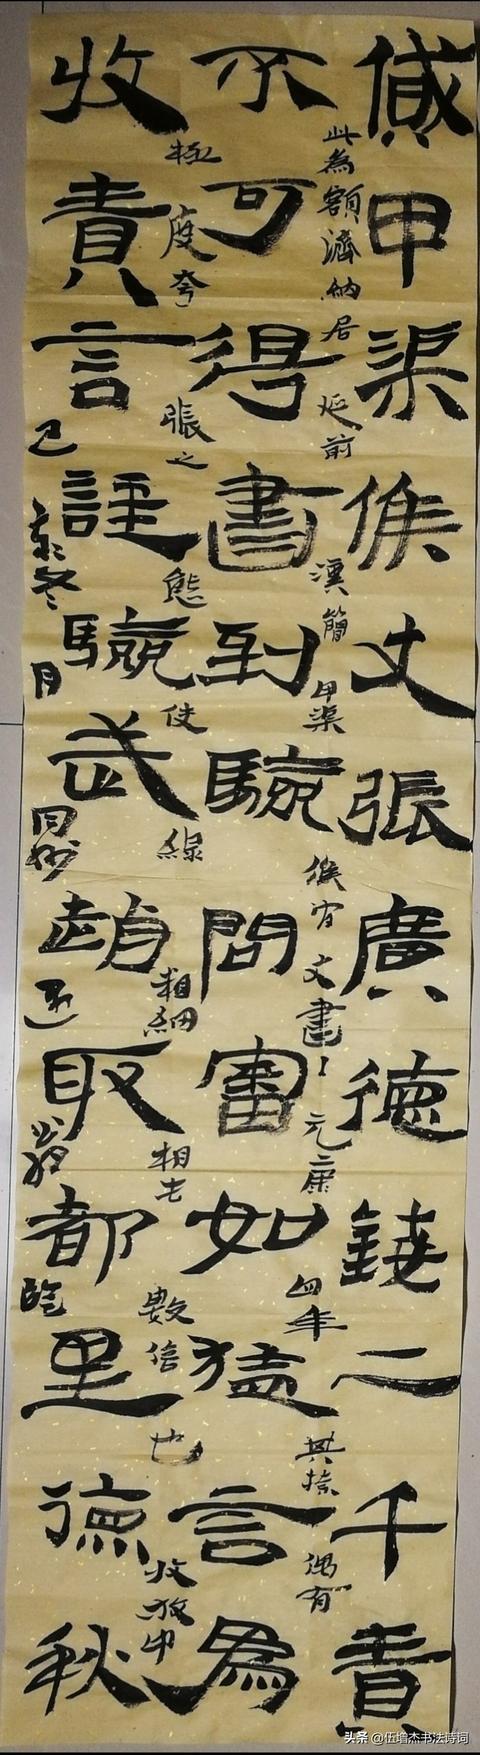 貸甲渠候丈張廣德錢二千責
此為額濟納居延前漢簡甲渠候官文書元康四年其捺偶有
不可得書到驗問審如猛言為
極度夸張之態使線粗細相去數倍也收放中
收責言謹驗武趙取都里德秋
己亥冬月臨
头条 @伍增杰书法诗词